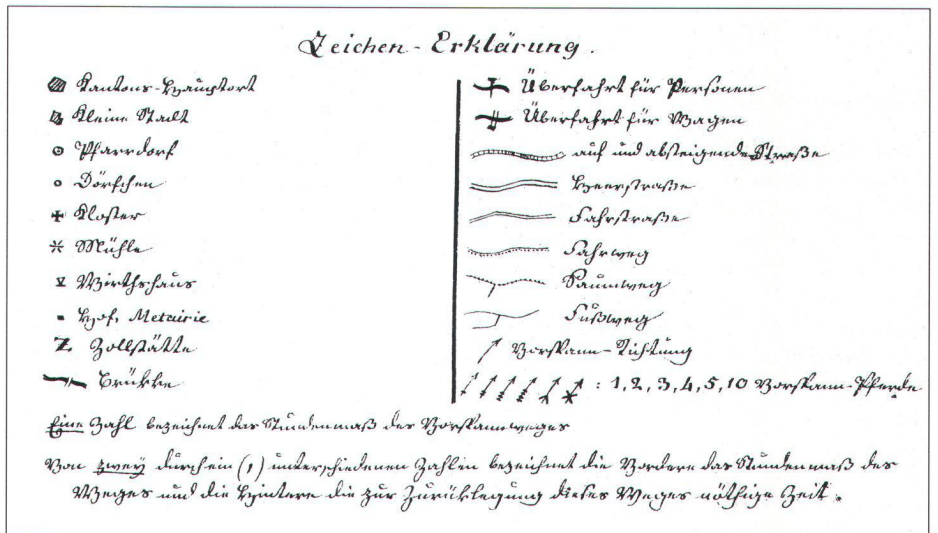 Zeichen-Erklärung.
Kantons-Hauptort
Kleine Stadt
Pfarrdorf
Dörfchen
Kloster
Mühle
Wirthshaus
Hof, Metairie
Z Zollstätte
Brükke
Überfahrt für Personen
Überfahrt für Wagen
auf und absteigende Straße
Heerstraße
Fahrstraße
Fahrweg
Saumweg
Fußweg
Vorspann-Richtung
: 1, 2, 3, 4, 5, 10 Vorspann-Pferde
Eine Zahl bezeichnet das Stundenmaß des Vorspannweges
Von zwey durch ein (,) unterschiedenen Zahlen bezeichnet die Vordere das Stundenmaß des
Weges und die Hintere die zur Zurüklegung dieses Weges nöthige Zeit.